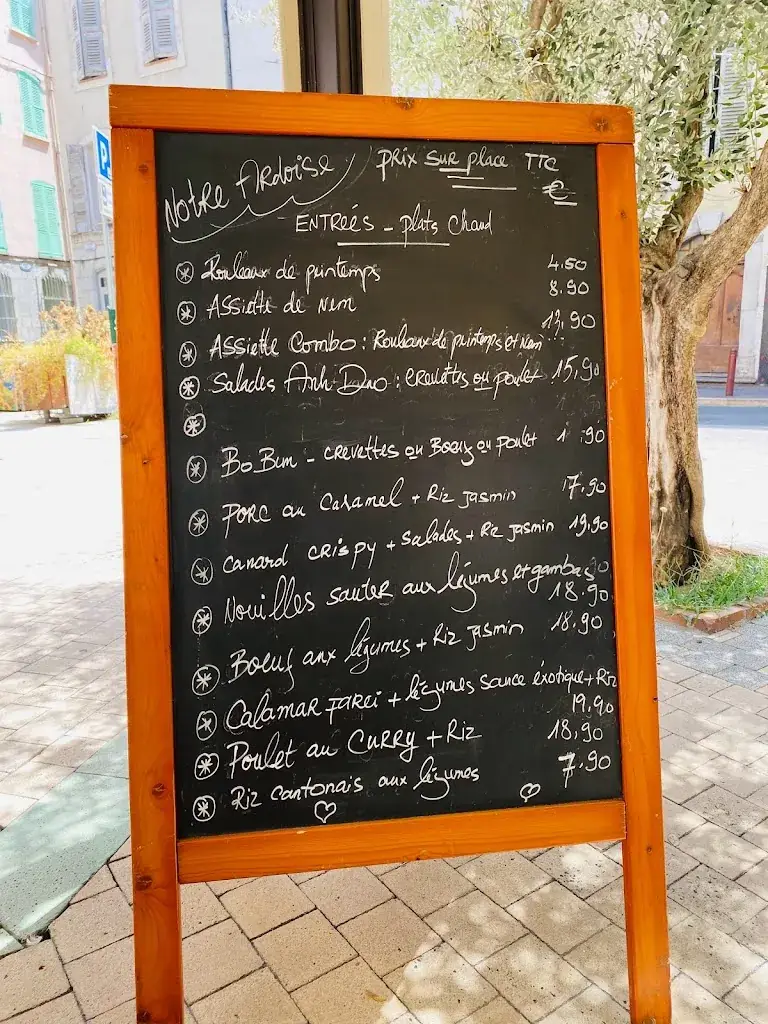 P
Notre Ardoise prix sur place TTC
€
ENTREÉS - plats chaud
Rouleaux de printemps 4.50
Assiette de Nem 8.90
Assiette Combo : Rouleaux de printemps et nem 13,90
Salades Anh Dao : crevettes ou poulet 15,90
Bo Bun - crevettes ou Boeuf ou poulet 1 .90
Porc au Caramel + Riz jasmin 17.90
canard crispy + salades + Riz jasmin 19,90
Nouilles sauter aux légumes et gambas
18.90
Boeuf aux légumes + Riz jasmin 18.90
Calamar farci + légumes sauce éxotique + Riz
19,90
Poulet au CURRY + Riz 18,90
Riz cantonais aux légumes 7.90